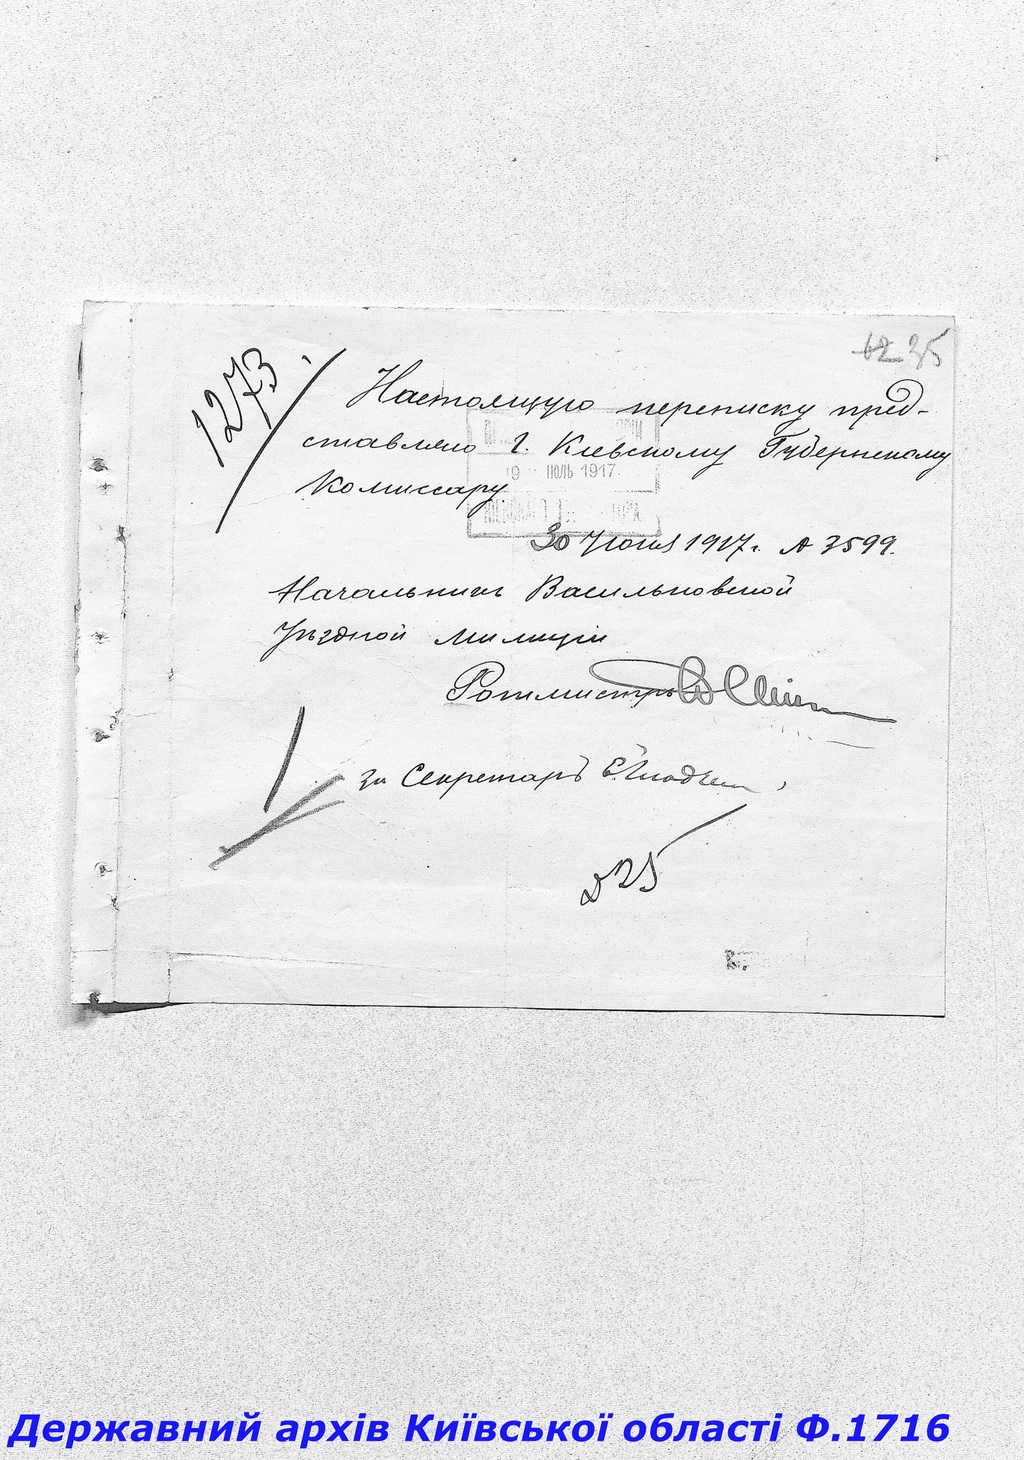 62 35
1273
Настоящую переписку пред-
ставляю Г. Кіевскому Губернскому
Комиссару
9 ІЮЛЬ 1917.
30 Іюня 1917 г. № 3599.
Начальникъ Васильковской
Уѣздной Милиціи
Ротмистръ
за Секретаръ
225
Державний архів Київської області Ф.1716